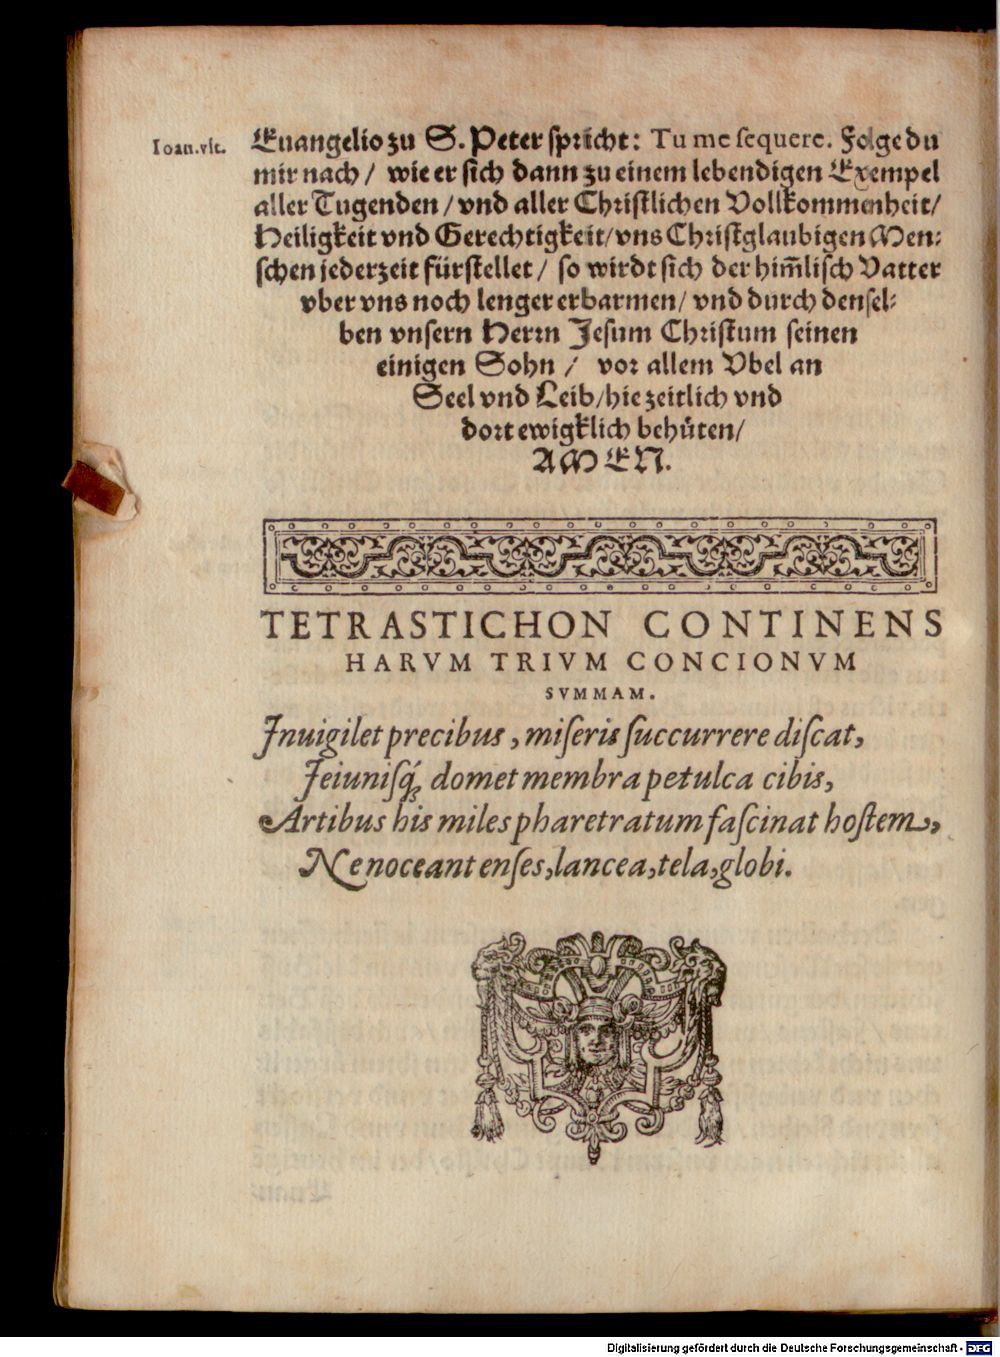 Ioan.vlt.
Euangelio zu S. Peter spricht: Tu me sequere. Folge du
mir nach / wie er sich dann zu einem lebendigen Exempel
aller Tugenden / vnd aller Christlichen Vollkommenheit /
Heiligkeit vnd Gerechtigkeit / vns Christglaubigen Men-
schen jederzeit fürstellet / so wirdt sich der him̃lisch Vatter
vber vns noch lenger erbarmen / vnd durch densel-
ben vnsern Herrn Jesum Christum seinen
einigen Sohn / vor allem Vbel an
Seel vnd Leib / hie zeitlich vnd
dort ewigklich behuͤten /
AMEN.
TETRASTICHON CONTINENS
HARVM TRIVM CONCIONVM
SVMMAM.
Inuigilet precibus, miseris succurrere discat,
Ieiunisq́; domet membra petulca cibis,
Artibus his miles pharetratum fascinat hostem,
Ne noceant enses, lancea, tela, globi.
Digitalisierung gefördert durch die Deutsche Forschungsgemeinschaft - DFG